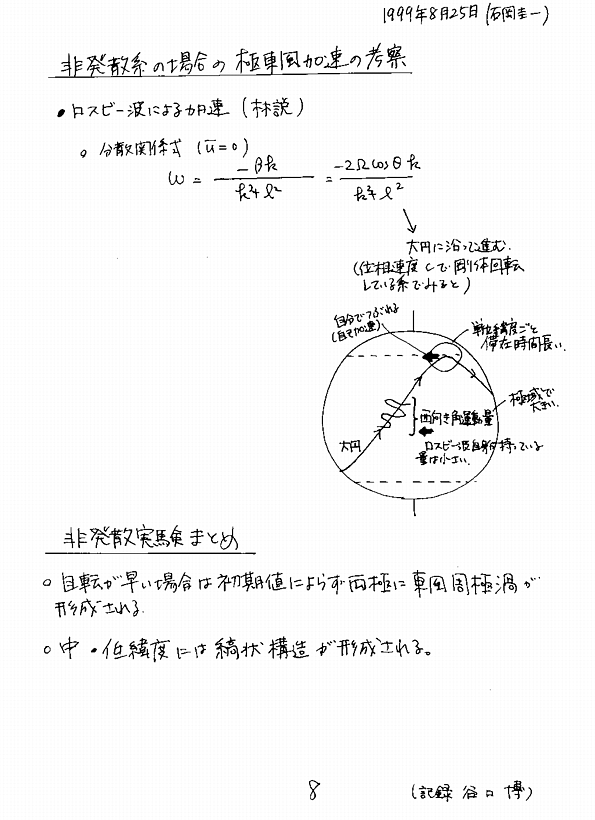 1999年8月25日 (石岡圭一)
非発散系の場合の極東風加速の考察
・ロスビー波による加速 (林説)
○ 分散関係式 (ū=0)
ω = -βk / (k²+l²) = -2Ωcosθ k / (k²+l²)
大円に沿って進む.
(位相速度 して 剛体回転
している系でみると)
自分でつぶれる
(自己加速)
単位緯度ごと
滞在時間長い.
極域で
大きい.
西向き角運動量
大円
ロスビー波自身持っている
量は小さい.
非発散実験まとめ
○ 自転が早い場合は初期値によらず両極に東風周極渦が
形成される.
○ 中・低緯度には縞状構造が形成される。
8
(記録 谷口 博)